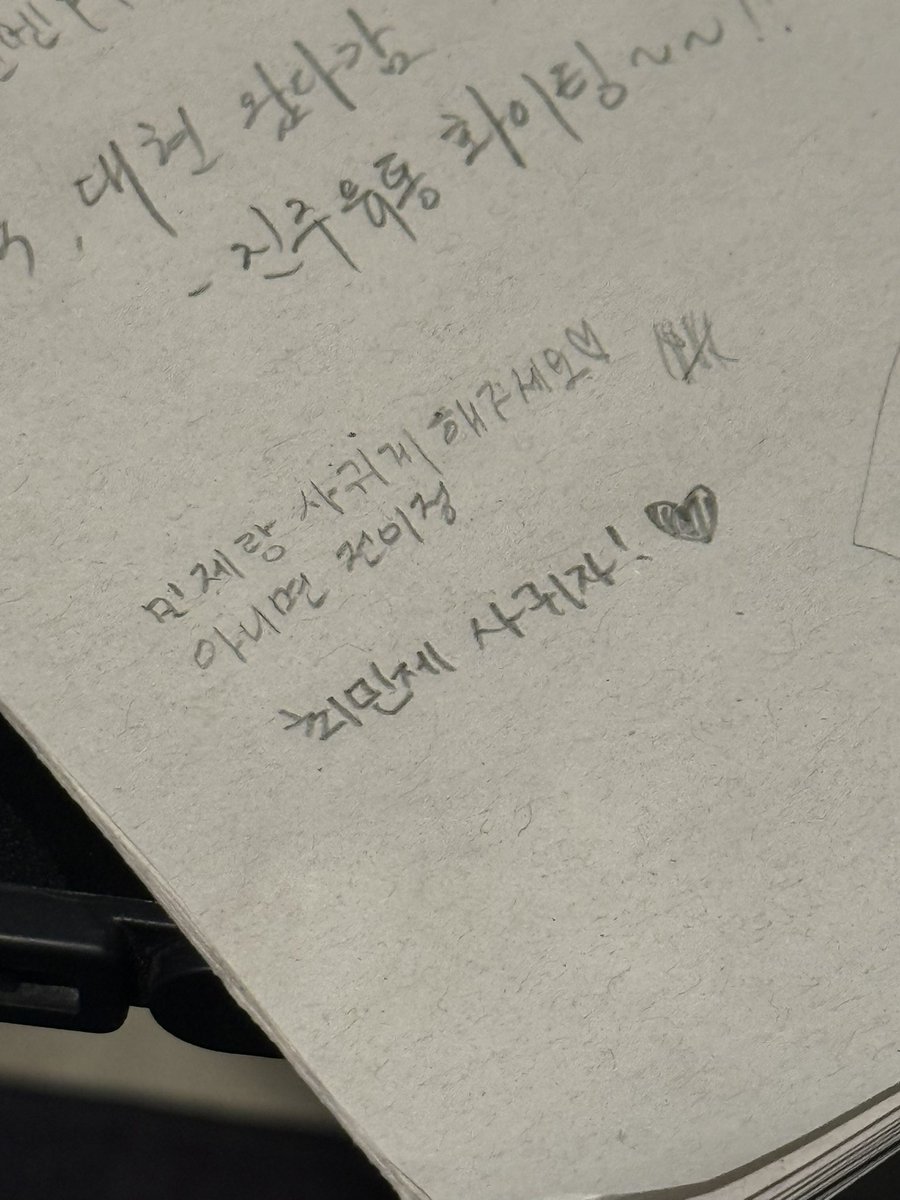 , 대현 왔다감
- 진주유통 화이팅~~!!
민제랑 사귀게 해주세요♡
아니면 전이정
최민제 사귀자! ♥